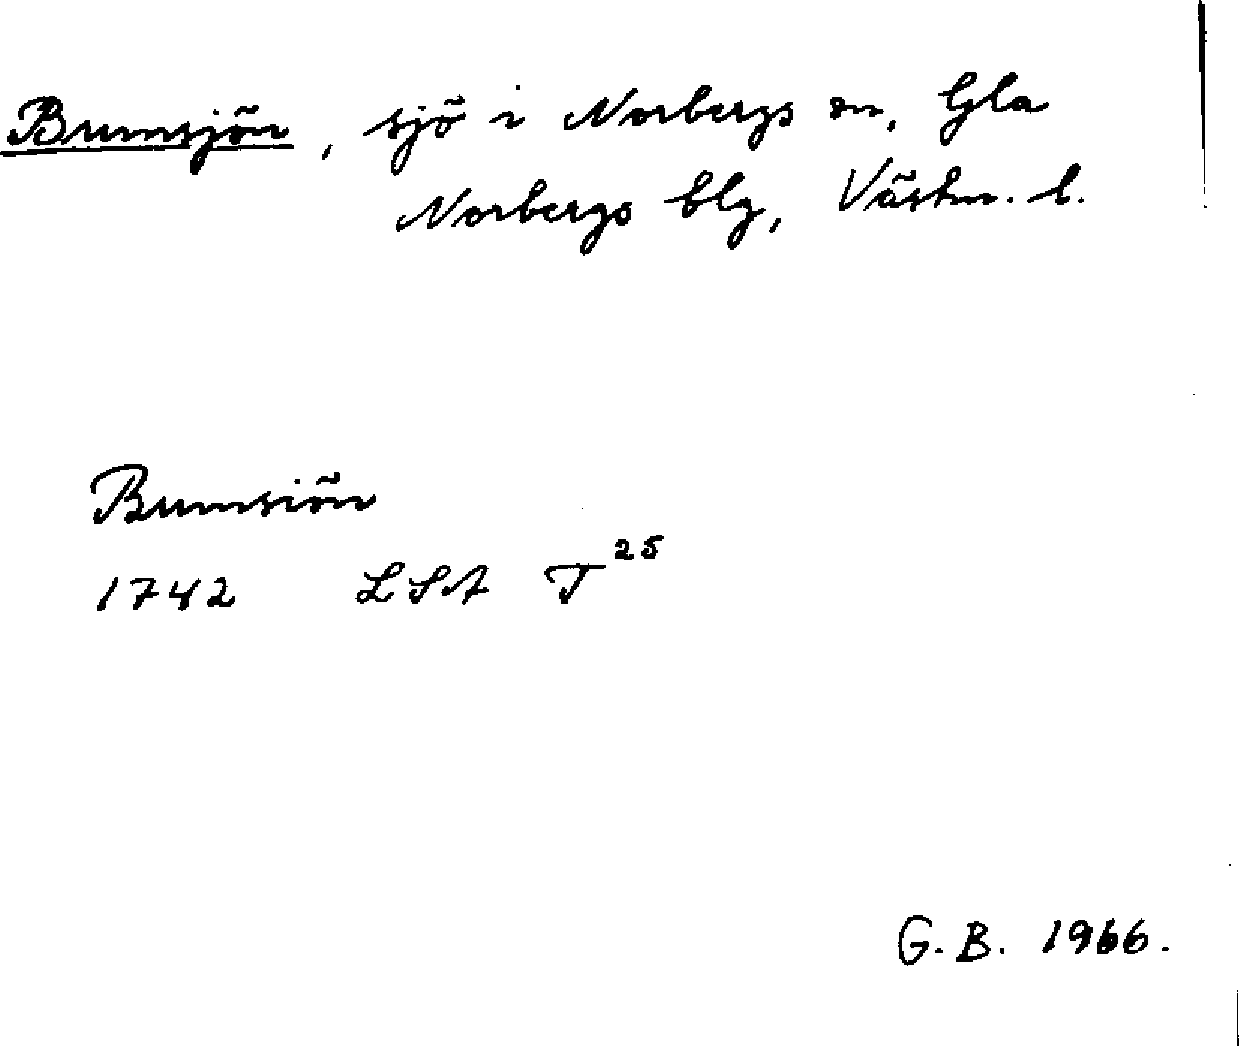 Brunnsjön, sjö i Norbergs sn, Gla
Norbergs blg, Västm. l.
Brunnsiön
1742 LSA T 25
G. B. 1966.